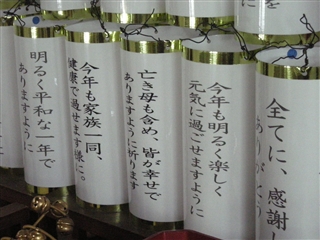 全てに、感謝し
ありがとう
今年も明るく楽しく
元気に過ごせますように
亡き母も含め、皆が幸せで
ありますように祈ります
今年も家族一同、
健康で過せます様に。
明るく平和な一年で
ありますように